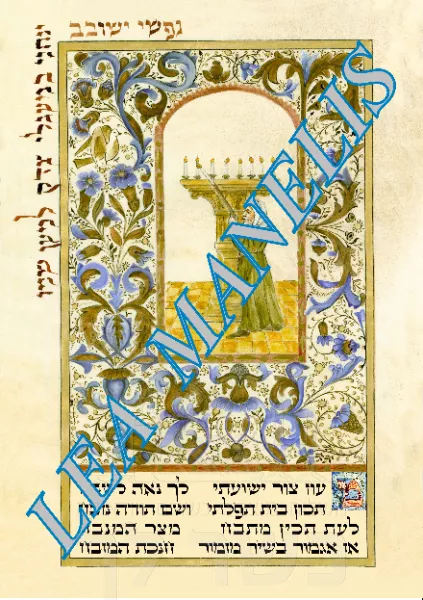 נפשי ישובב
ינחני במעגלי צדק למען שמו
עוז צור ישועתי לך נאה
תכון בית תפלתי ושם תודה
לעת תכין מטבח מצר המנבח
אז אגמור בשיר מזמור חנכת המזבח
LEA MANELIS